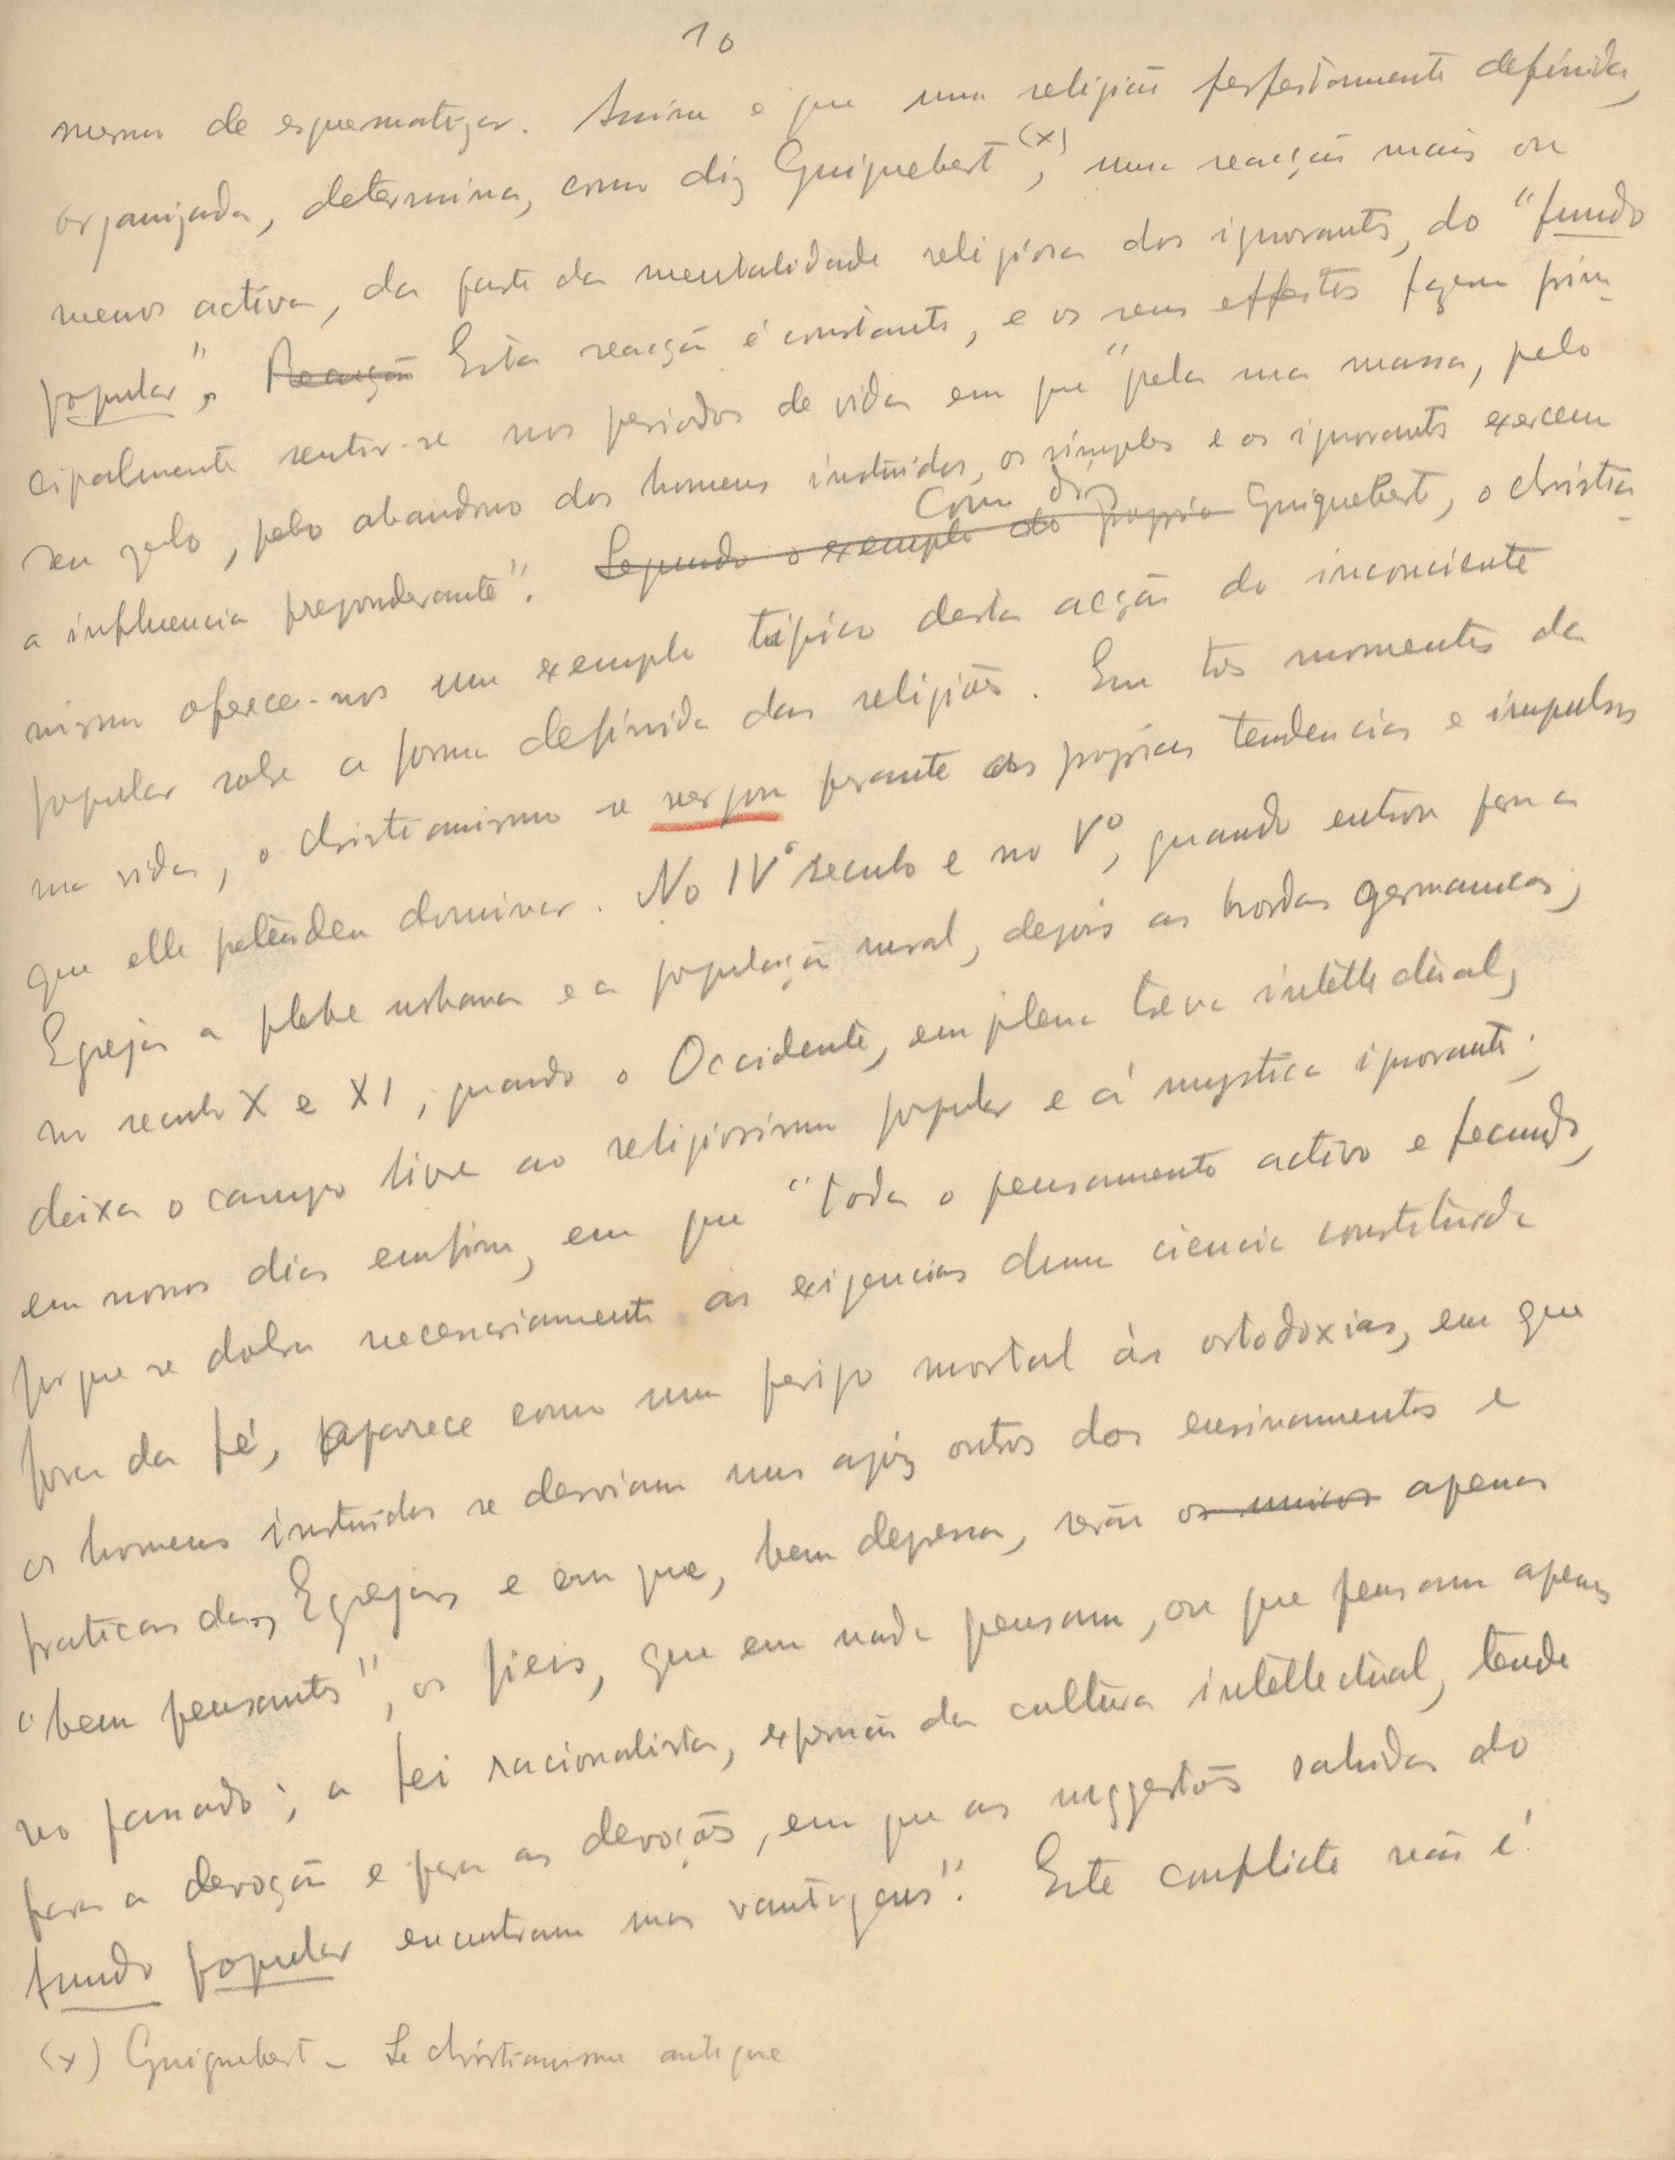 10
mesmo de esquematizar. Assim é que uma religião perfeitamente definida,
organizada, determina, como diz Guiguebert (x), uma reacção mais ou
menos activa, da parte da mentalidade religiosa dos ignorantes, do "fundo
popular". Reacção Esta reacção é constante, e os seus effeitos fazem prin-
cipalmente sentir-se nos periodos de vida em que "pela sua massa, pelo
seu zelo, pelo abandono dos homens instruidos, os simples e os ignorantes exercem
a influencia preponderante". Segundo o exemplo do proprio Como diz Guiguebert, o christia-
nismo oferece-nos um exemplo tipico desta acção do inconciente
popular sobre a forma definida das religiões. Em tres momentos da
sua vida, o christianismo se vergou perante as proprias tendencias e impulsos
que elle pretendeu dominar. No IVº seculo e no Vº, quando entrou para a
Egreja a plebe urbana e a população rural, depois as hordas germanicas;
no seculo X e XI, quando o Occidente, em plena treva intellectual,
deixa o campo livre ao religiosismo popular e á mystica ignorante;
em nossos dias emfim, em que "todo o pensamento activo e fecundo,
porque se dobra necessariamente as exigencias duma ciencia constituida
fora da fé, aparece como um perigo mortal ás ortodoxias, em que
os homens instruidos se desviam uns após outros dos ensinamentos e
praticas das Egrejas e em que, bem depressa, serão os unicos apenas
"bem pensantes", os fieis, que em nada pensam, ou que pensam apenas
no passado; a fei racionalista, expressão da cultura intellectual, tende
para a devoção e para as devoções, em que as suggestões sahidas do
fundo popular encontram suas vantagens". Este conflicto não é
(x) Guiguebert - Le christianisme antique